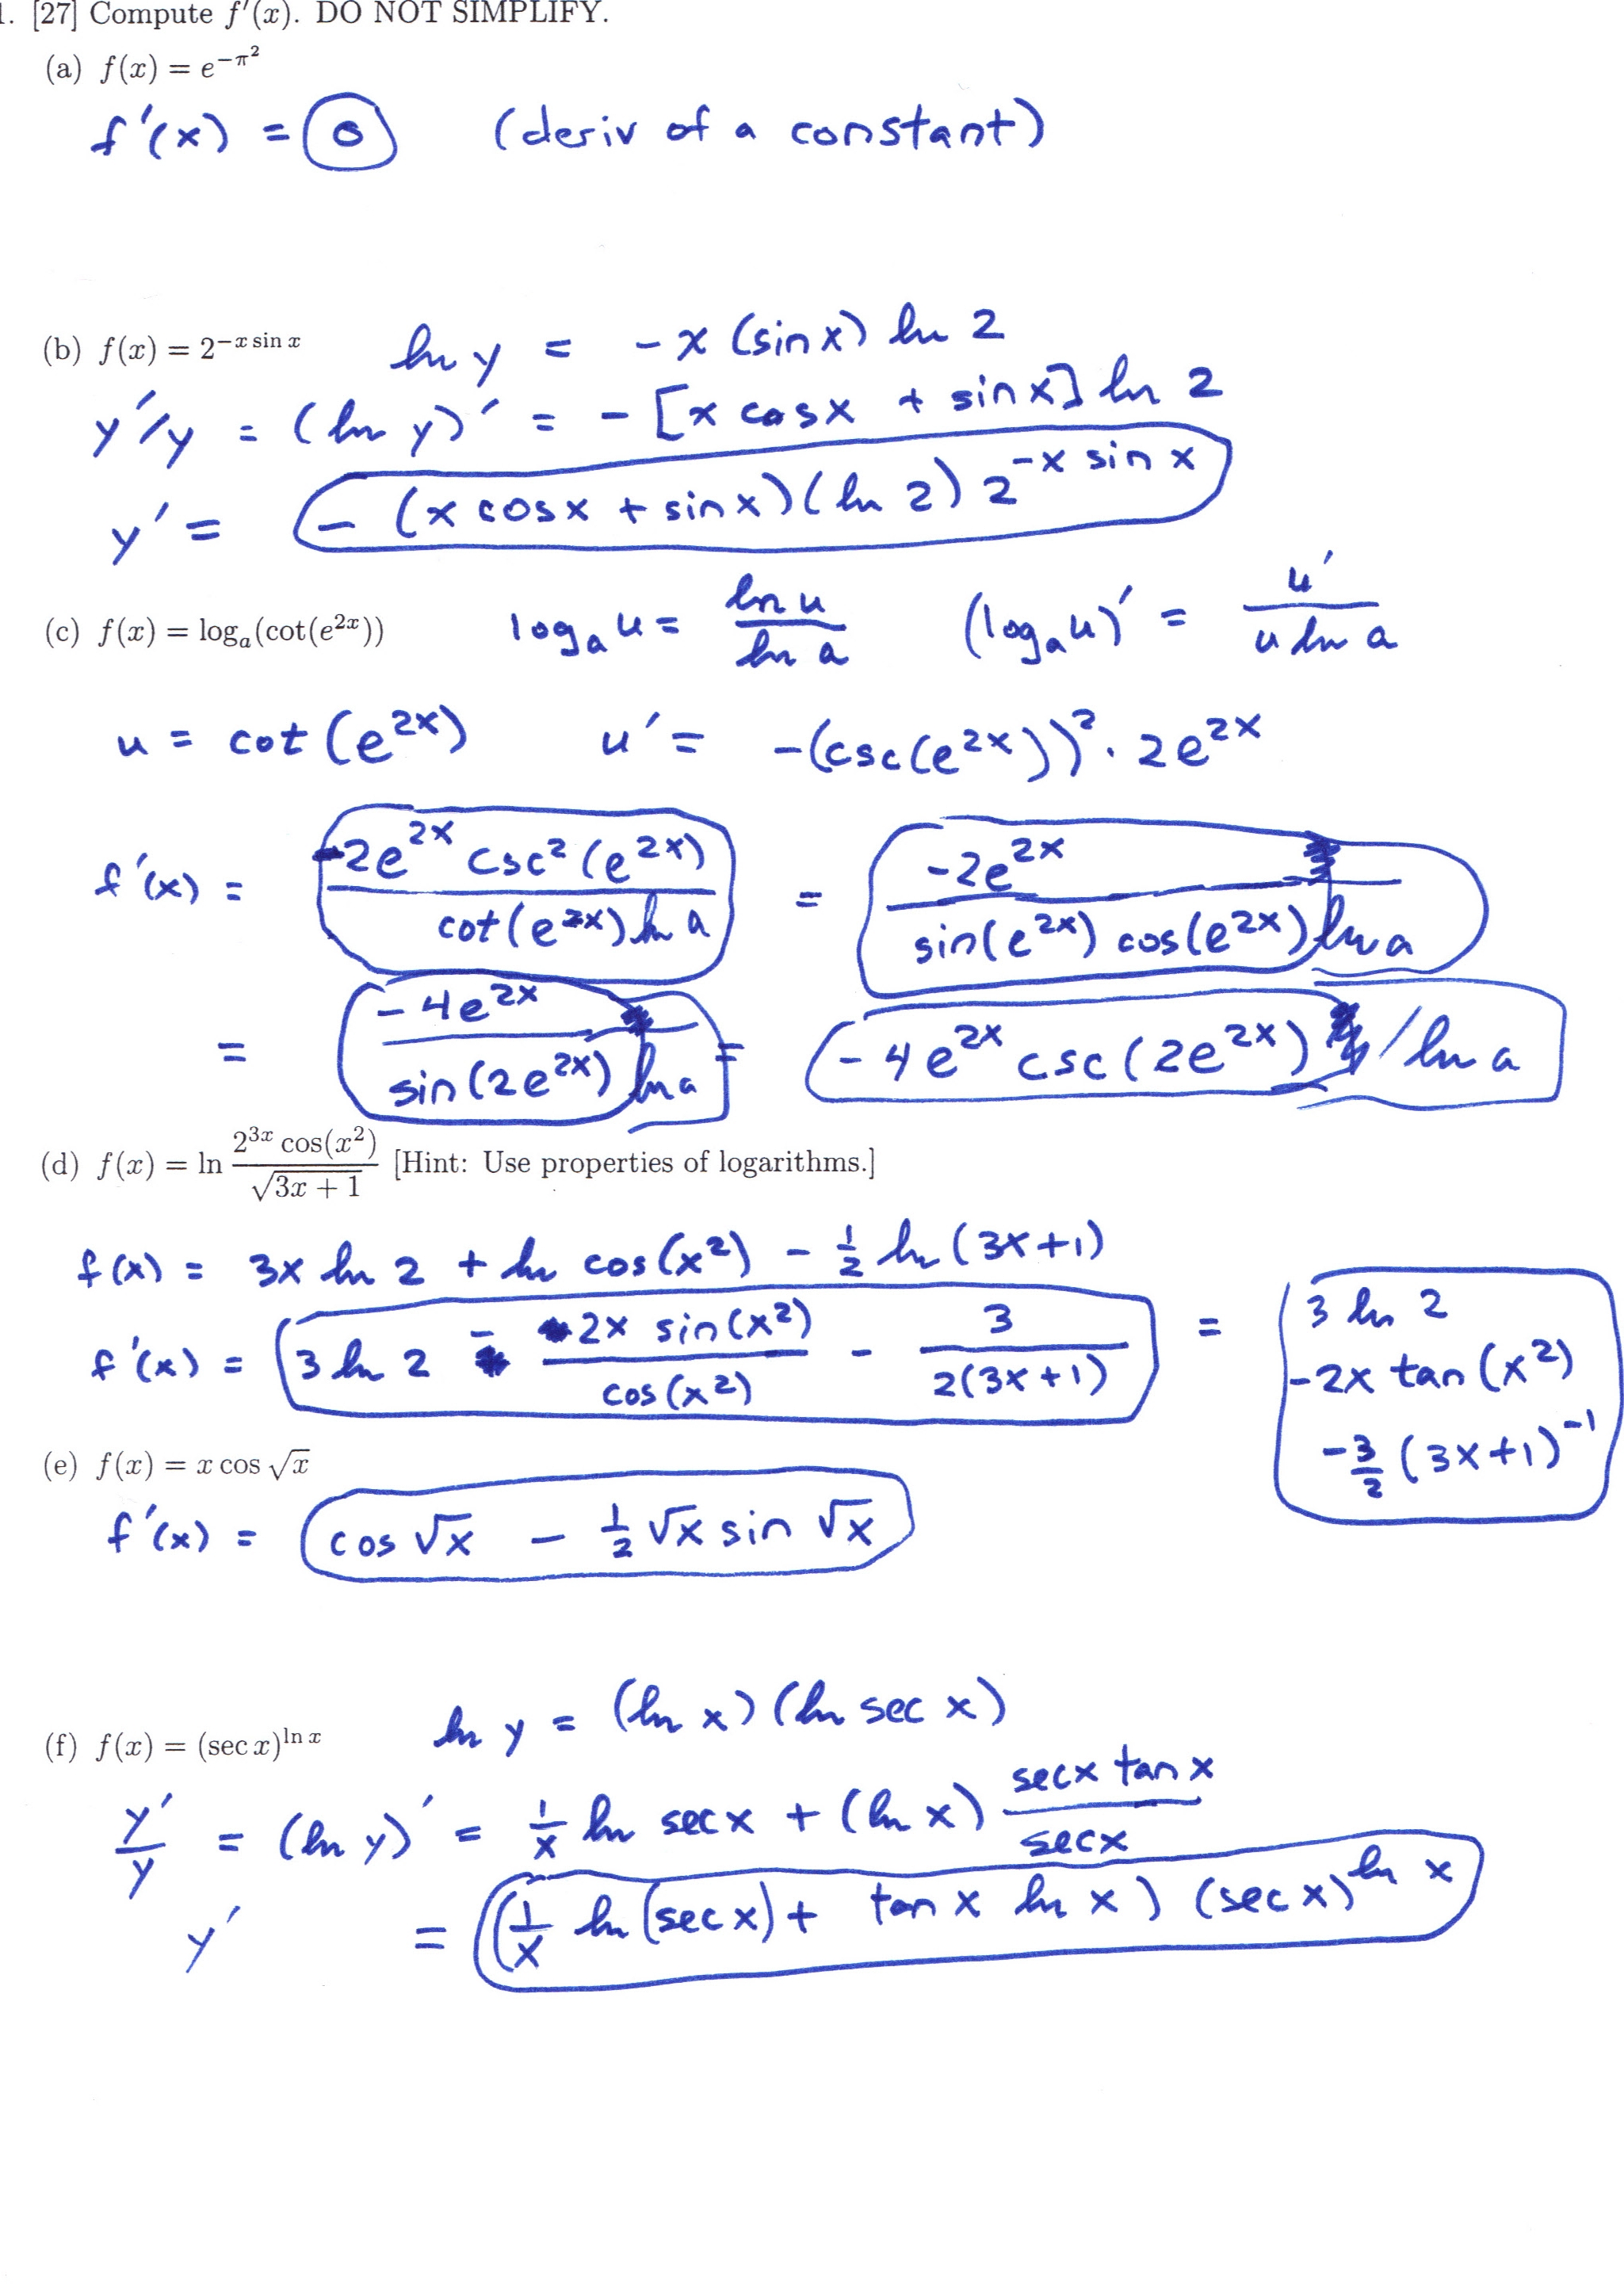 1. [27] Compute f′(x). DO NOT SIMPLIFY.
(a) f(x) = e^{−π²}
f′(x) = 0 (deriv of a constant)
(b) f(x) = 2^{−x sin x} ln y = −x (sin x) ln 2
y′/y = (ln y)′ = −[x cos x + sin x] ln 2
y′ = −(x cos x + sin x)(ln 2) 2^{−x sin x}
(c) f(x) = log_a(cot(e^{2x})) log_a u = \frac{ln u}{ln a} (log_a u)′ = \frac{u′}{u ln a}
u = cot(e^{2x}) u′ = −(csc(e^{2x}))² · 2e^{2x}
f′(x) = \frac{−2e^{2x} csc²(e^{2x})}{cot(e^{2x}) ln a} = \frac{−2e^{2x}}{sin(e^{2x}) cos(e^{2x}) ln a}
= \frac{−4e^{2x}}{sin(2e^{2x}) ln a} = −4e^{2x} csc(2e^{2x}) / ln a
(d) f(x) = ln \frac{2^{3x} cos(x²)}{\sqrt{3x + 1}} [Hint: Use properties of logarithms.]
f(x) = 3x ln 2 + ln cos(x²) − \frac{1}{2} ln(3x+1)
f′(x) = 3 ln 2 − \frac{2x sin(x²)}{cos(x²)} − \frac{3}{2(3x+1)} = 3 ln 2
−2x tan(x²)
−\frac{3}{2}(3x+1)^{−1}
(e) f(x) = x cos √x
f′(x) = cos √x − \frac{1}{2} √x sin √x
(f) f(x) = (sec x)^{ln x} ln y = (ln x)(ln sec x)
\frac{y′}{y} = (ln y)′ = \frac{1}{x} ln sec x + (ln x) \frac{sec x tan x}{sec x}
y′ = (\frac{1}{x} ln(sec x) + tan x ln x) (sec x)^{ln x}